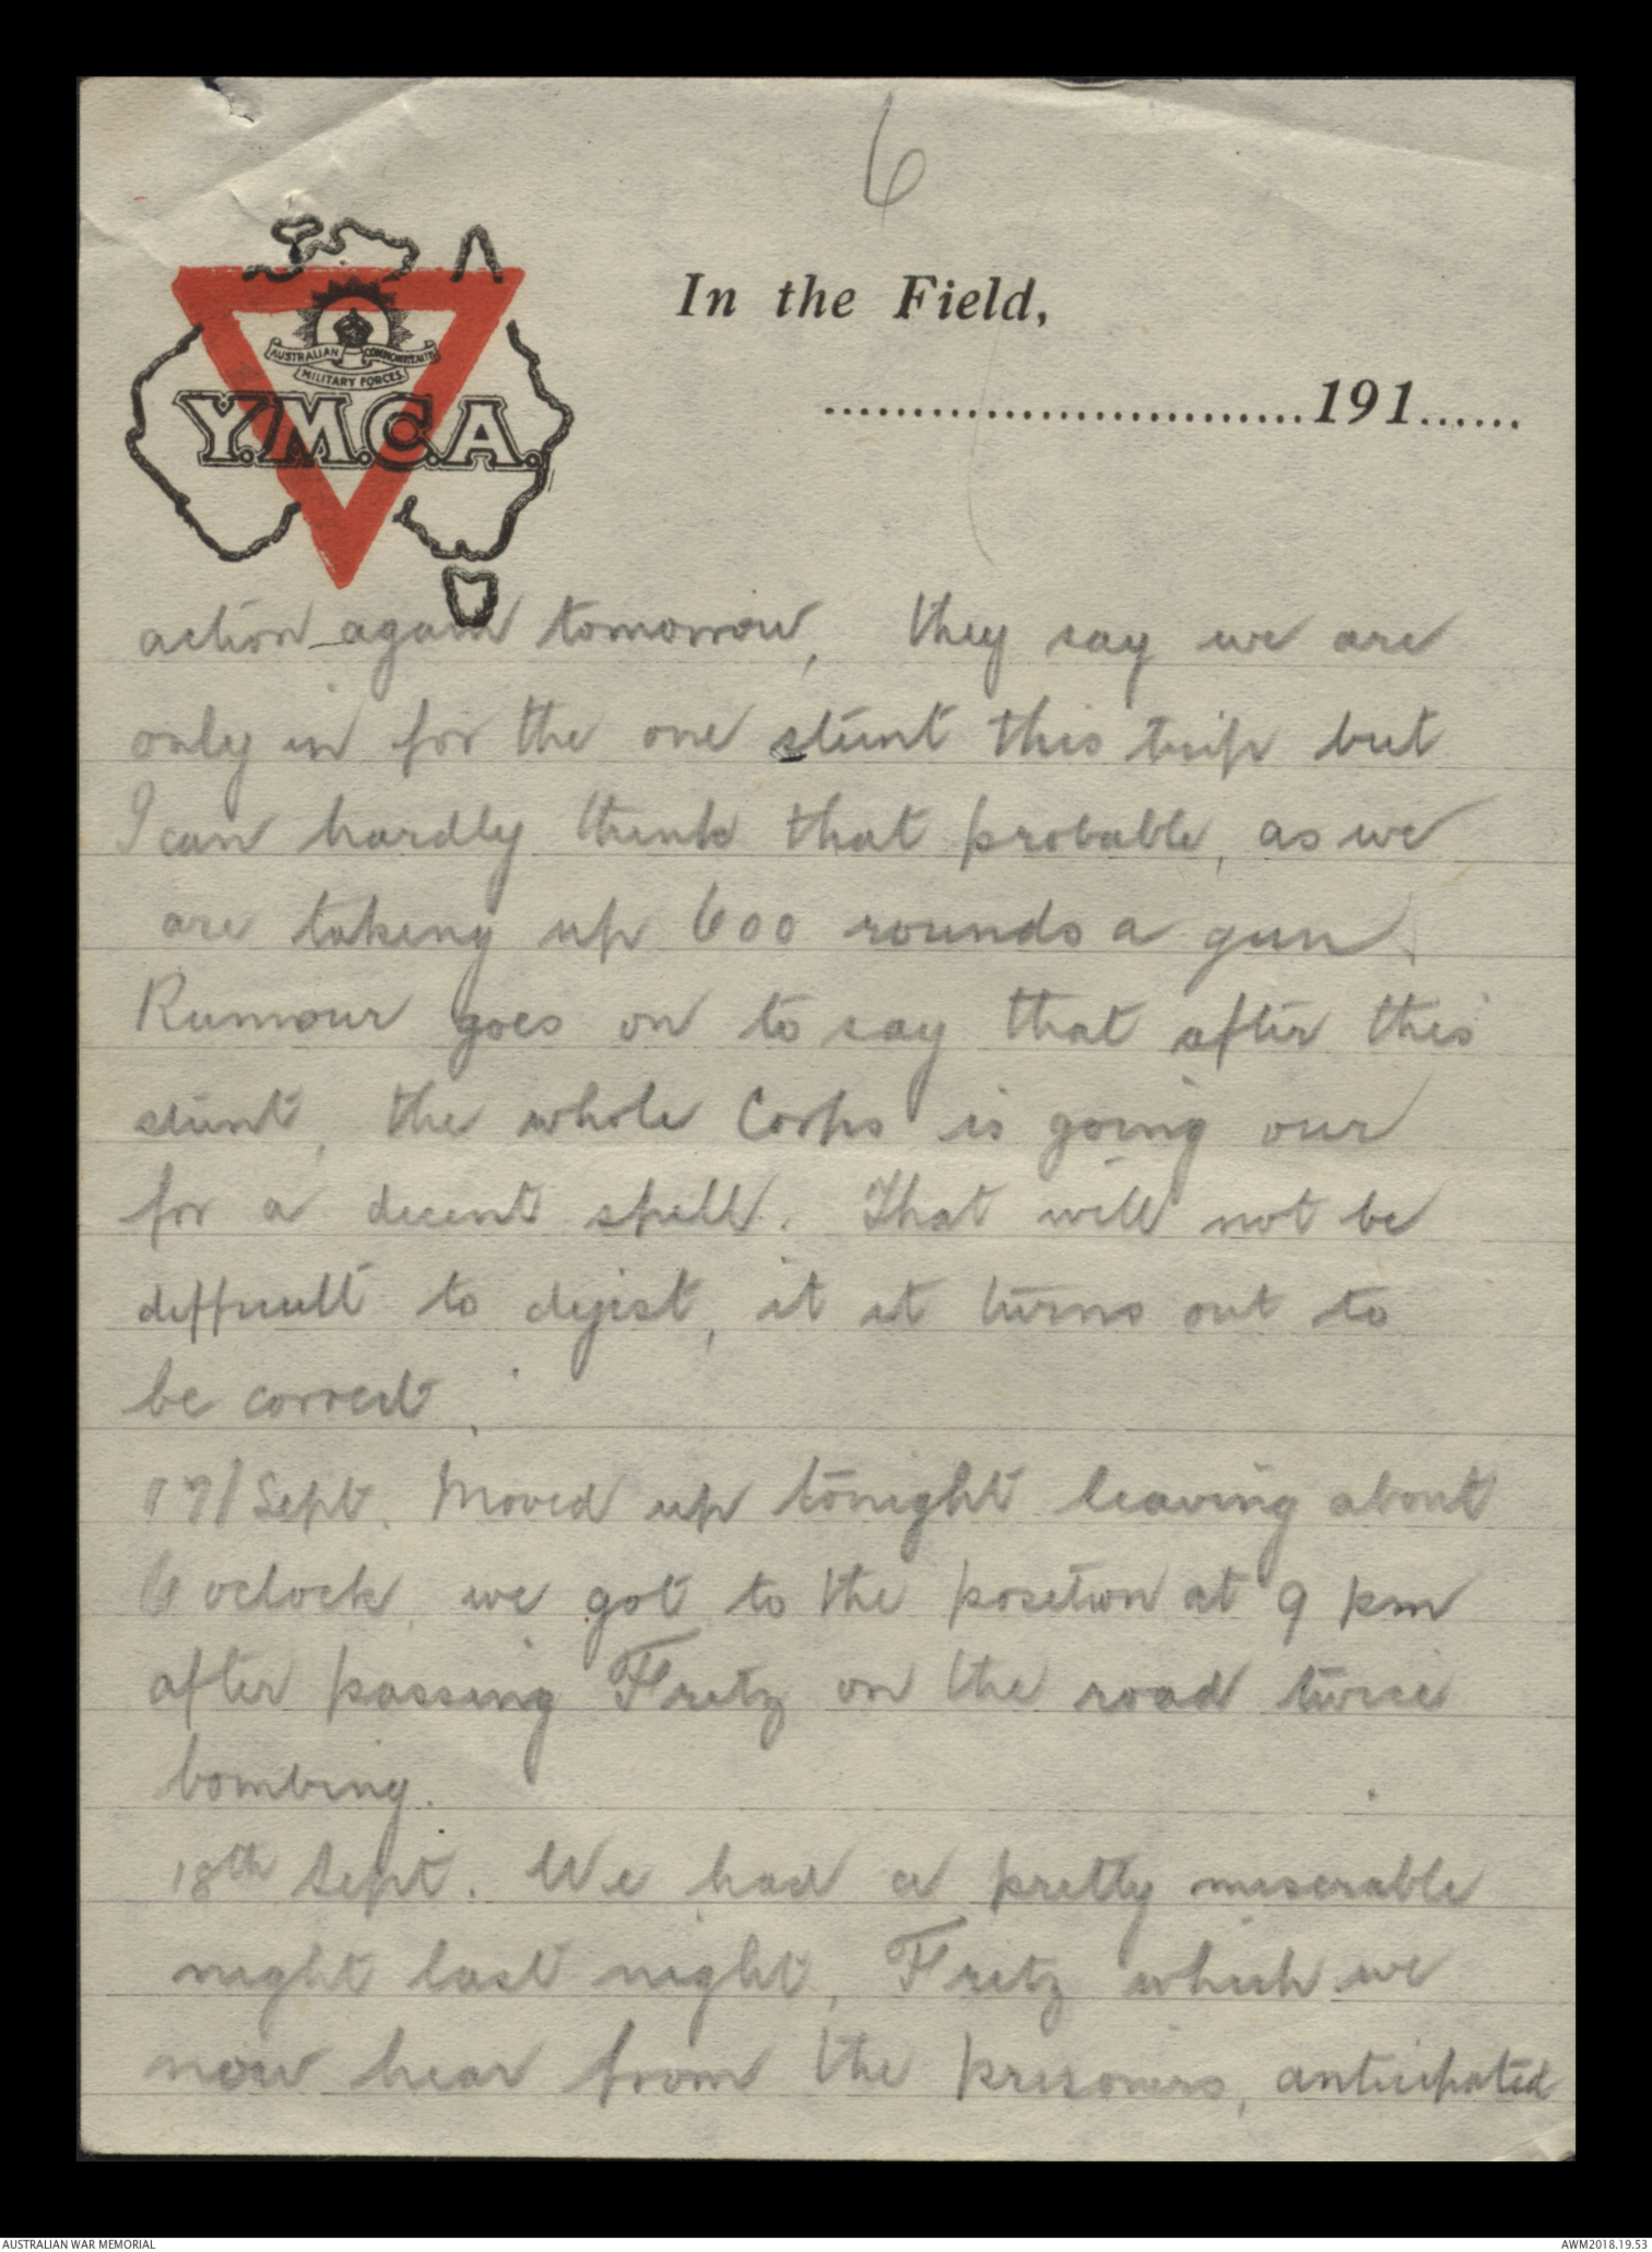 6
In the Field,
..............................191......
AUSTRALIAN COMMONWEALTH
MILITARY FORCES
Y.M.C.A.
action again tomorrow, they say we are
only in for the one stunt this trip but
I can hardly think that probable, as we
are taking up 600 rounds a gun.
Rumour goes on to say that after this
stunt, the whole Corps is going our
for a decent spell. That will not be
difficult to digest, it it turns out to
be correct.
17/Sept. Moved up tonight leaving about
6 oclock, we got to the position at 9 pm
after passing Fritz on the road twice
bombing.
18th Sept. We had a pretty miserable
night last night, Fritz which we
now hear from the prisoners, anticipated
AUSTRALIAN WAR MEMORIAL
AWM2018.19.53